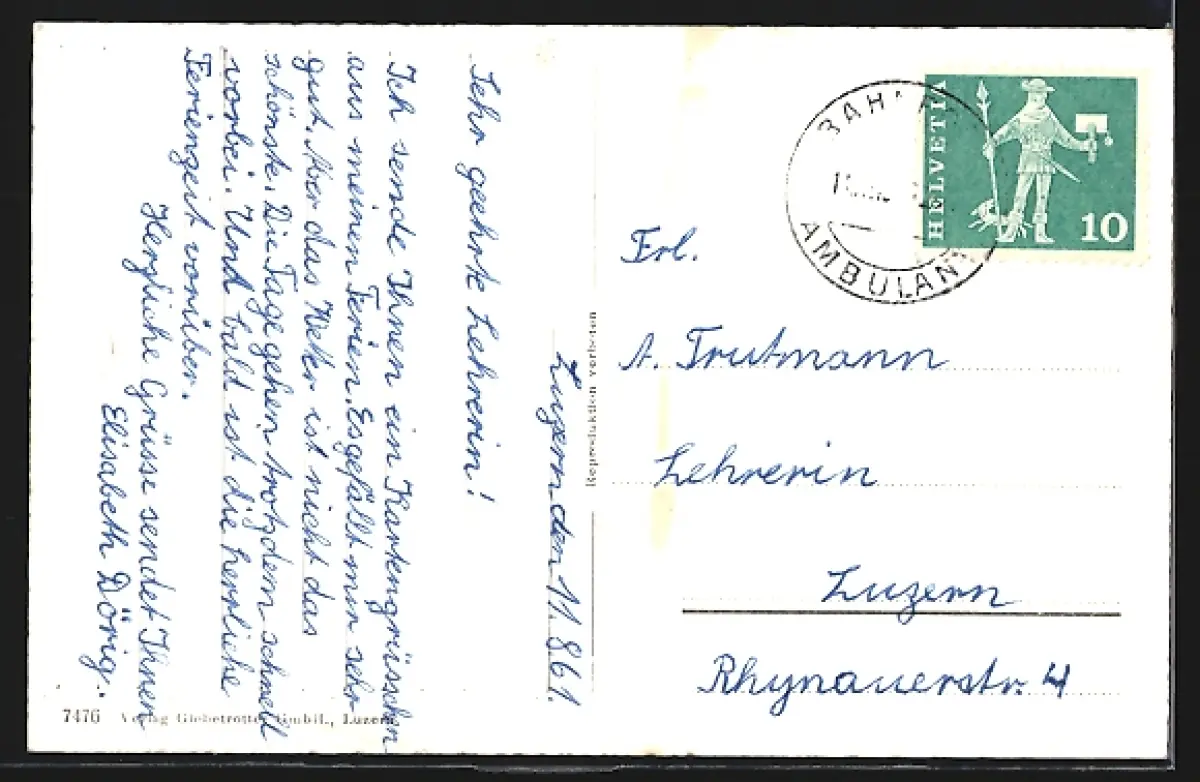 Luzern den 11.8.61.
Sehr geehrte Lehrerin!
Ich sende Ihnen ein Kartengrüsschen
aus meinen Ferien. Es gefällt mir sehr
gut. Aber das Wetter ist nicht das
schönste. Die Tage gehen trotzdem schnell
vorbei. Und bald ist die herrliche
Ferienzeit vorüber.
Herzliche Grüsse sendet Ihnen
Elisabeth Dörig.
Reproduktion verboten
7476 Verlag Globetrotter GmbH., Luzern
HELVETIA
10
AMBULAN
Frl.
A. Trutmann
Lehrerin
Luzern
Rhynauerstr. 4